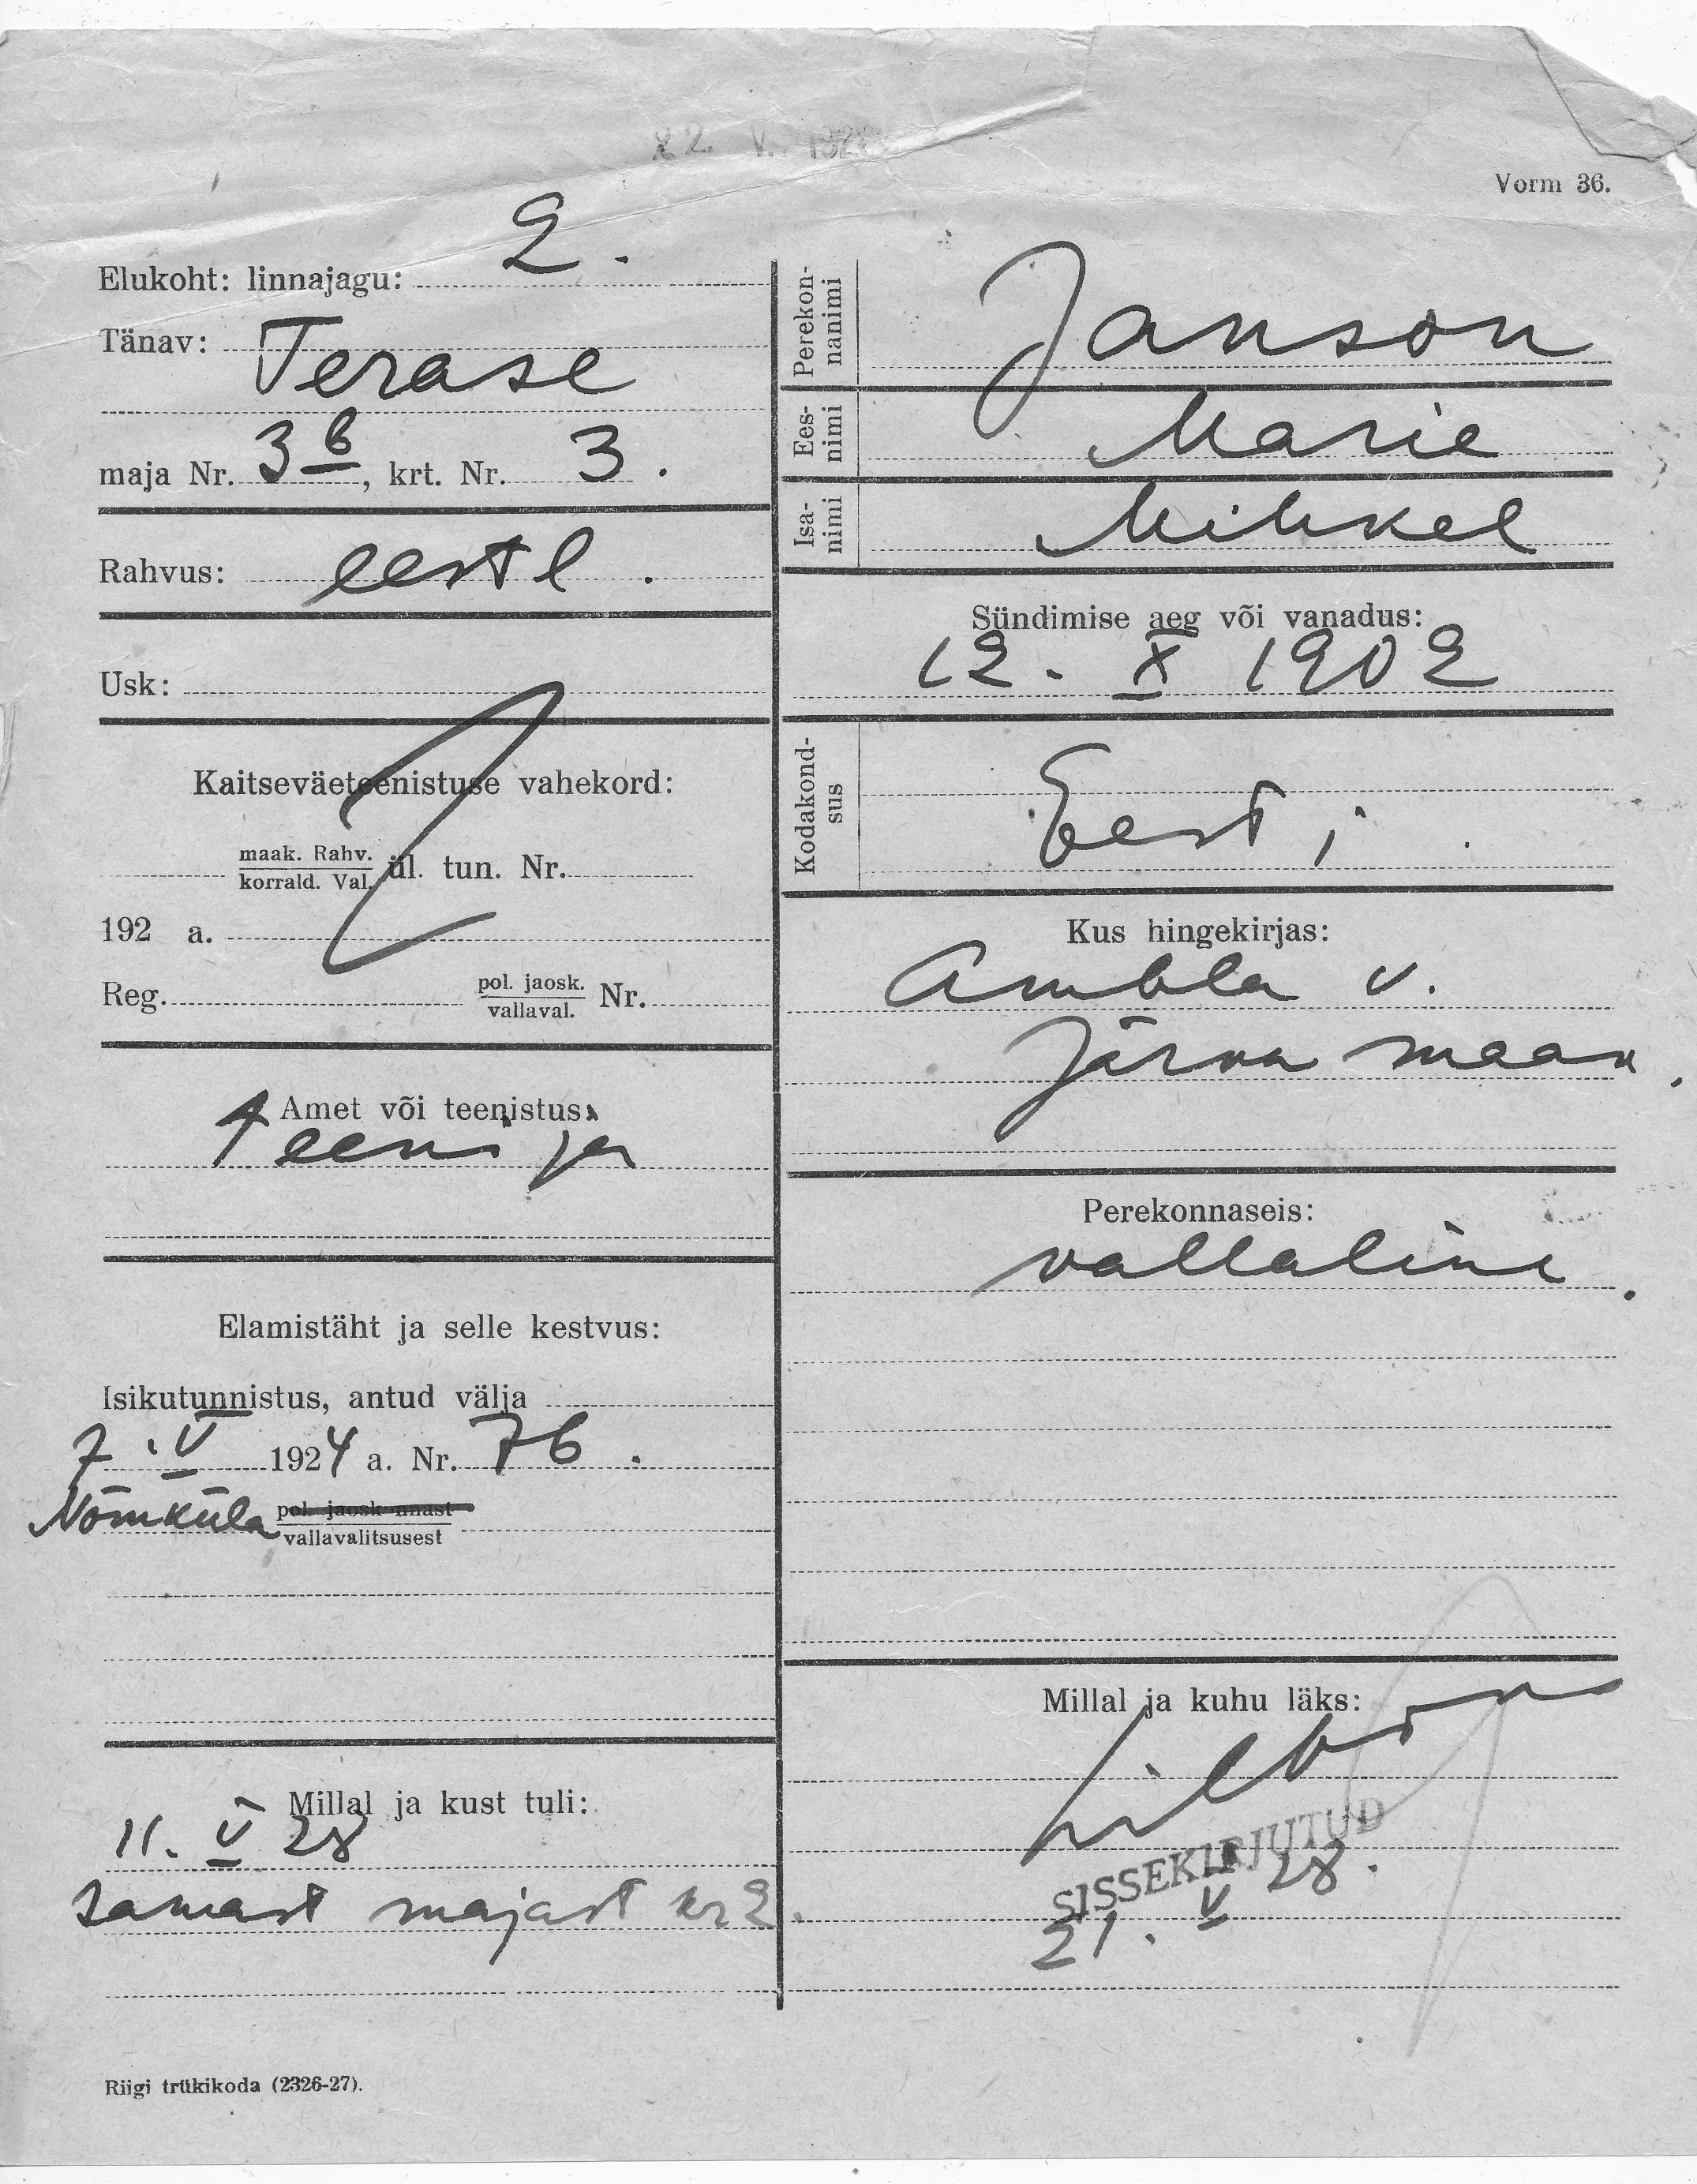 22. V. 192
Vorm 36.
Elukoht: linnajagu: 2.
Tänav: Terase
maja Nr. 3 b, krt. Nr. 3.
Rahvus: eestl.
Usk:
Kaitseväeteenistuse vahekord:
maak. Rahv.
korrald. Val. ül. tun. Nr.
192 a.
Reg. pol. jaosk.
vallaval. Nr.
Amet või teenistus:
teenija
Elamistäht ja selle kestvus:
Isikutunnistus, antud välja
7. V 1924 a. Nr. 76.
Nõmküla pol. jaosk-nnast
vallavalitsusest
Millal ja kust tuli:
11. V 28
samast majast kr 2.
Riigi trükikoda (2326-27).
Perekon-
nanimi Janson
Ees-
nimi Marie
Isa-
nimi Mihkel
Sündimise aeg või vanadus:
12. X 1902
Kodakond-
sus Eesti.
Kus hingekirjas:
Ambla v.
Järva maak.
Perekonnaseis:
vallaline.
Millal ja kuhu läks:
SISSEKIRJUTUD
21. V 28.